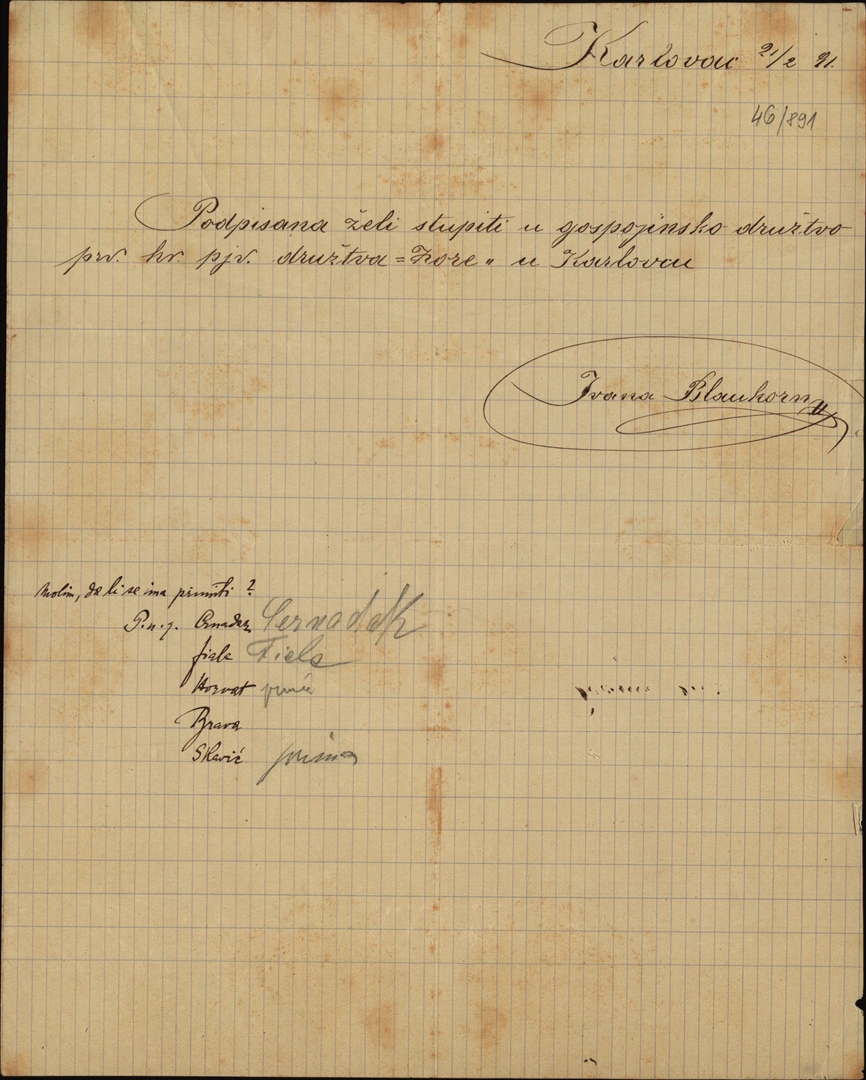 Karlovac 21/2 91.
46/891
Podpisana želi stupiti u gospojinsko družtvo
prv. hr. pjv. družtva „Zore" u Karlovcu
Ivana Blauhorn
Molim, da li se ima primiti?
P. n. g. Crnadak
Fiala Fiala
Horvat
Brava
Slavić prima